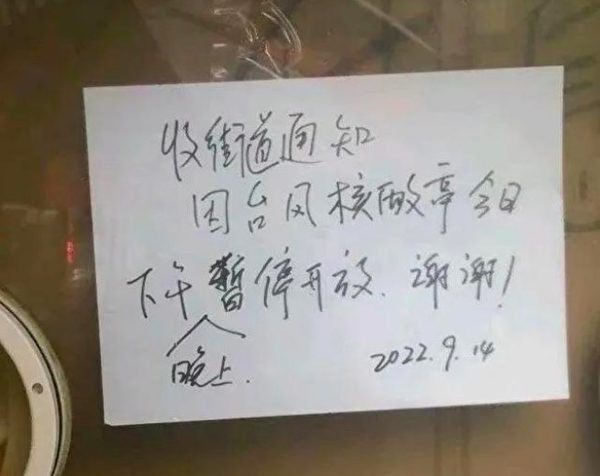 收街道通知
因台风核酸亭今日
下午暂停开放、谢谢！
晚上.
2022.9.14